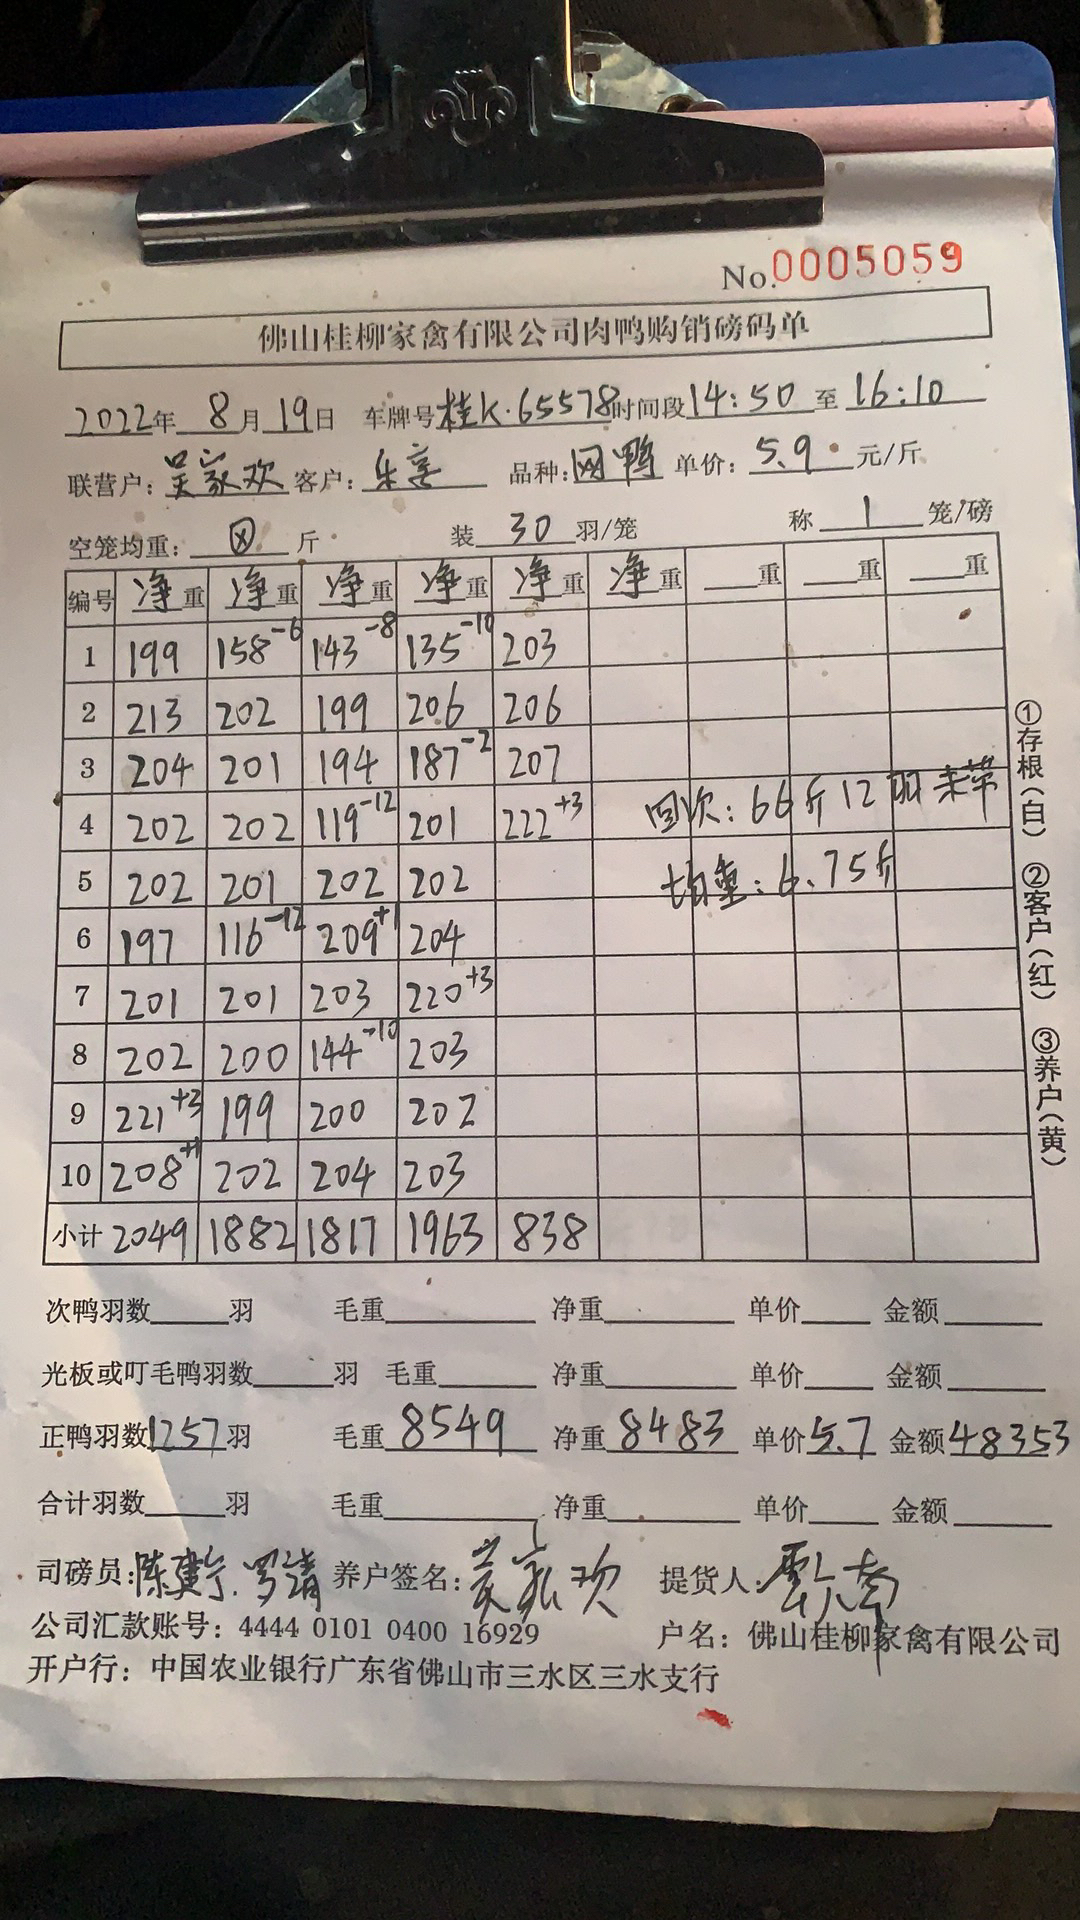 No.0005059
佛山桂柳家禽有限公司肉鸭购销磅码单
2022年 8月19日 车牌号桂K·65578时间段14:50至16:10
联营户:吴家欢 客户:乐善 品种:网鸭 单价:5.9元/斤
空笼均重: 斤 装 30 羽/笼 称 1 笼/磅
编号 净重 净重 净重 净重 净重 净重 重 重 重
1 199 158-6 143-8 135-10 203
2 213 202 199 206 206
3 204 201 194 187-2 207
4 202 202 119-12 201 222+3 回次:66斤12羽未带
5 202 201 202 202 均重:6.75斤
6 197 116-12 209+1 204
7 201 201 203 220+3
8 202 200 144-10 203
9 221+3 199 200 202
10 208+1 202 204 203
小计 2049 1882 1817 1963 838
①存根(白) ②客户(红) ③养户(黄)
次鸭羽数 羽 毛重 净重 单价 金额
光板或叮毛鸭羽数 羽 毛重 净重 单价 金额
正鸭羽数1257羽 毛重8549 净重8483 单价5.7 金额48353
合计羽数 羽 毛重 净重 单价 金额
司磅员:陈 养户签名:吴家欢 提货人:
公司汇款账号:4444 0101 0400 16929 户名:佛山桂柳家禽有限公司
开户行:中国农业银行广东省佛山市三水区三水支行